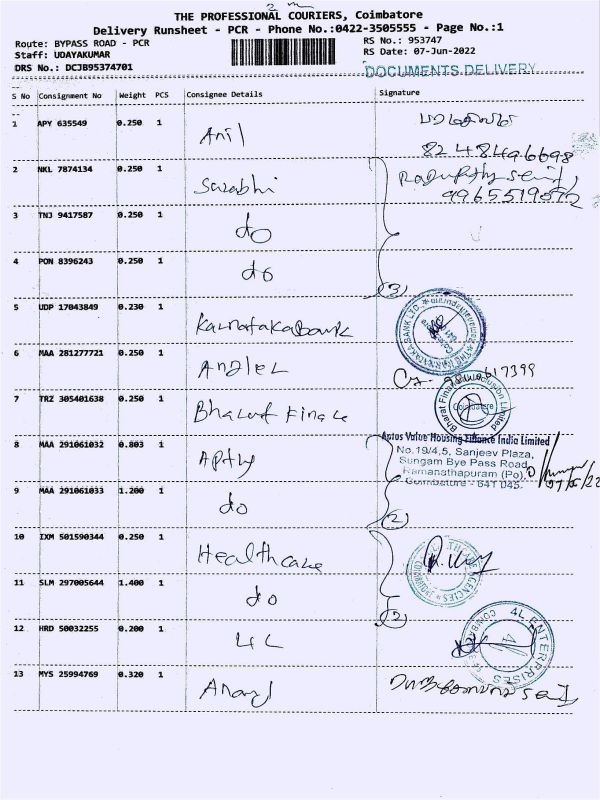 THE PROFESSIONAL COURIERS, Coimbatore
Delivery Runsheet - PCR - Phone No.:0422-3505555 - Page No.:1
Route: BYPASS ROAD - PCR
Staff: UDAYAKUMAR
DRS No.: DCJB95374701
RS No.: 953747
RS Date: 07-Jun-2022
DOCUMENTS DELIVERY
S No Consignment No Weight PCS Consignee Details Signature
1 APY 635549 0.250 1 Anil
8248496698
2 NKL 7874134 0.250 1 Sarabhi
9965519372
3 TNJ 9417587 0.250 1 do
4 PON 8396243 0.250 1 do
(3)
5 UDP 17043849 0.230 1 Karnataka Bank
6 MAA 281277721 0.250 1 Angler
7 TRZ 305401638 0.250 1 Bharat Finance
Coimbatore
8 MAA 291061032 0.803 1 Aptus
Aptus Value Housing Finance India Limited
No.19/4,5, Sanjeev Plaza,
Sungam Bye Pass Road,
Ramanathapuram (Po),
Coimbatore - 641 045.
9 MAA 291061033 1.200 1 do
(2)
10 IXM 501590344 0.250 1 Healthcare
11 SLM 297005644 1.400 1 do
(2)
12 HRD 50032255 0.200 1 4L
4L ENTERPRISES
13 MYS 25994769 0.320 1 Anand